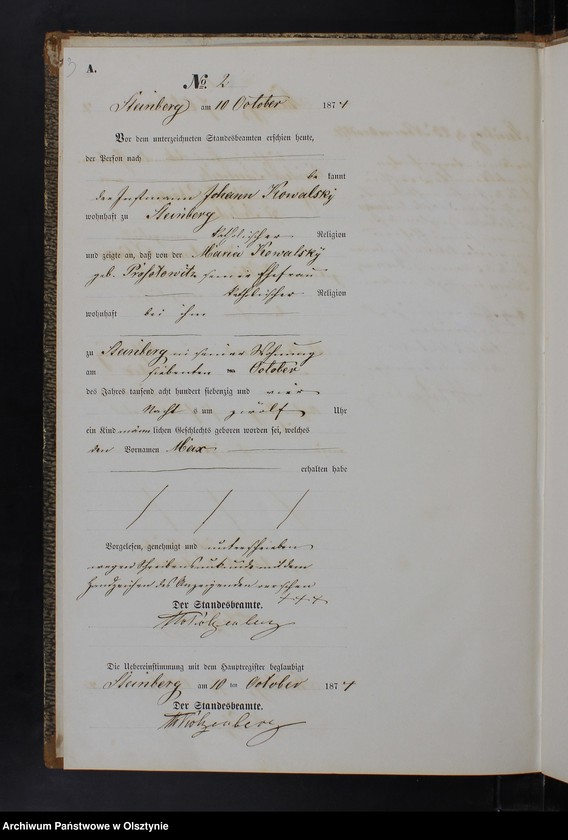 3
A.
No. 2
Steinberg am 10 October 1874
Vor dem unterzeichneten Standesbeamten erschien heute,
der Person nach
be kannt
der Instmann Johann Kowalsky
wohnhaft zu Steinberg
katholischer Religion
und zeigte an, daß von der Maria Kowalsky
geb. seiner Ehefrau
katholischer Religion
wohnhaft bei ihm
zu Steinberg in seiner Wohnung
am siebenten October
des Jahres tausend acht hundert siebenzig und vier
Nachts um zwölf Uhr
ein Kind männlichen Geschlechts geboren worden sei, welches
den Vornamen Max
erhalten habe
Vorgelesen, genehmigt und unterschrieben
wegen Schreibensunkunde mit dem
Handzeichen des Anzeigenden versehen
+++
Der Standesbeamte.
Die Uebereinstimmung mit dem Hauptregister beglaubigt
Steinberg am 10 ten October 1874
Der Standesbeamte.
Archiwum Państwowe w Olsztynie